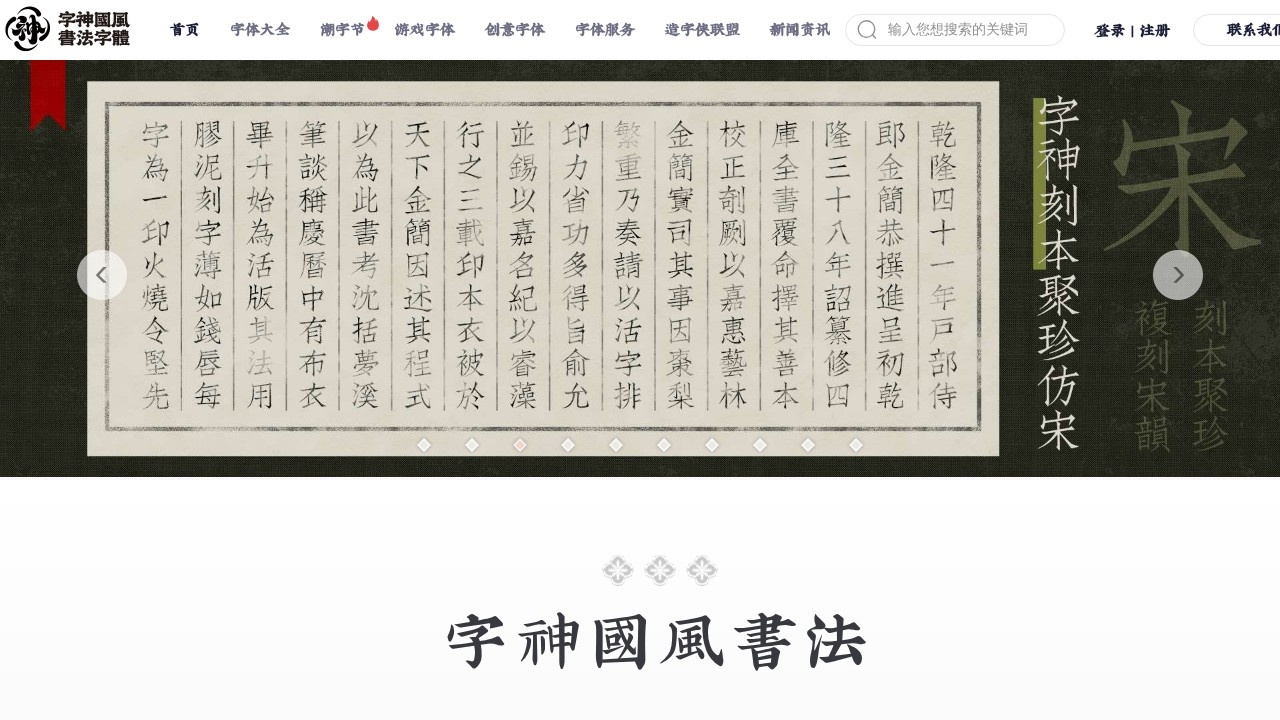 字神國風
書法字體
首页
字体大全
潮字节
游戏字体
创意字体
字体服务
造字侠联盟
新闻资讯
输入您想搜索的关键词
登录 | 注册
联系我们
乾隆四十一年戸部侍
郎金簡恭撰進呈初乾
隆三十八年詔纂修四
庫全書覆命擇其善本
校正剞劂以嘉惠藝林
金簡實司其事因棗梨
繁重乃奏請以活字排
印力省功多得旨俞允
並錫以嘉名紀以睿藻
行之三載印本衣被於
天下金簡因述其程式
以為此書考沈括夢溪
筆談稱慶曆中有布衣
畢升始為活版其法用
膠泥刻字薄如錢唇每
字為一印火燒令堅先
字神刻本聚珍仿宋
宋
刻本聚珍
複刻宋韻
字神國風書法